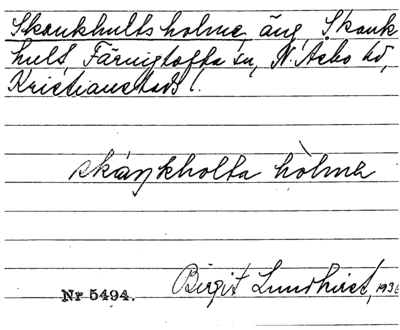 Skankhults holme, äng, Skank
hult, Färingtofta sn, N. Åsbo hd,
Kristianstads l.
skáŋkholta hòlmɐ
Nr 5494.
Birgit Lundkvist, 1936